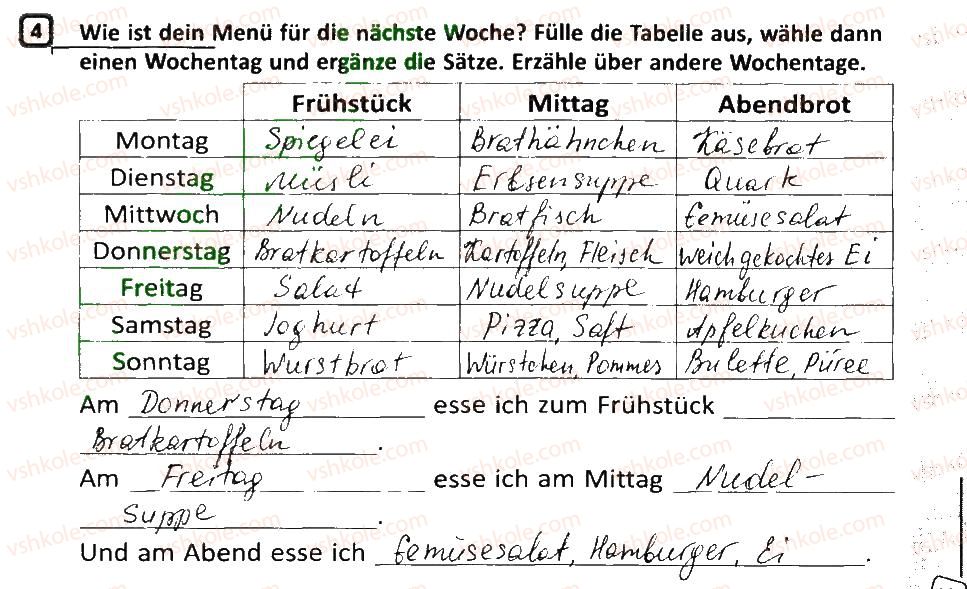 4 Wie ist dein Menü für die nächste Woche? Fülle die Tabelle aus, wähle dann
einen Wochentag und ergänze die Sätze. Erzähle über andere Wochentage.
Frühstück Mittag Abendbrot
Montag Spiegelei Brathähnchen Käsebrot
Dienstag Müsli Erbsensuppe Quark
Mittwoch Nudeln Bratfisch Gemüsesalat
Donnerstag Bratkartoffeln Kartoffeln, Fleisch weichgekochtes Ei
Freitag Salat Nudelsuppe Hamburger
Samstag Joghurt Pizza, Saft Apfelkuchen
Sonntag Wurstbrot Würstchen, Pommes Bulette, Püree
Am Donnerstag esse ich zum Frühstück
Bratkartoffeln.
Am Freitag esse ich am Mittag Nudel-
suppe.
Und am Abend esse ich Gemüsesalat, Hamburger, Ei.